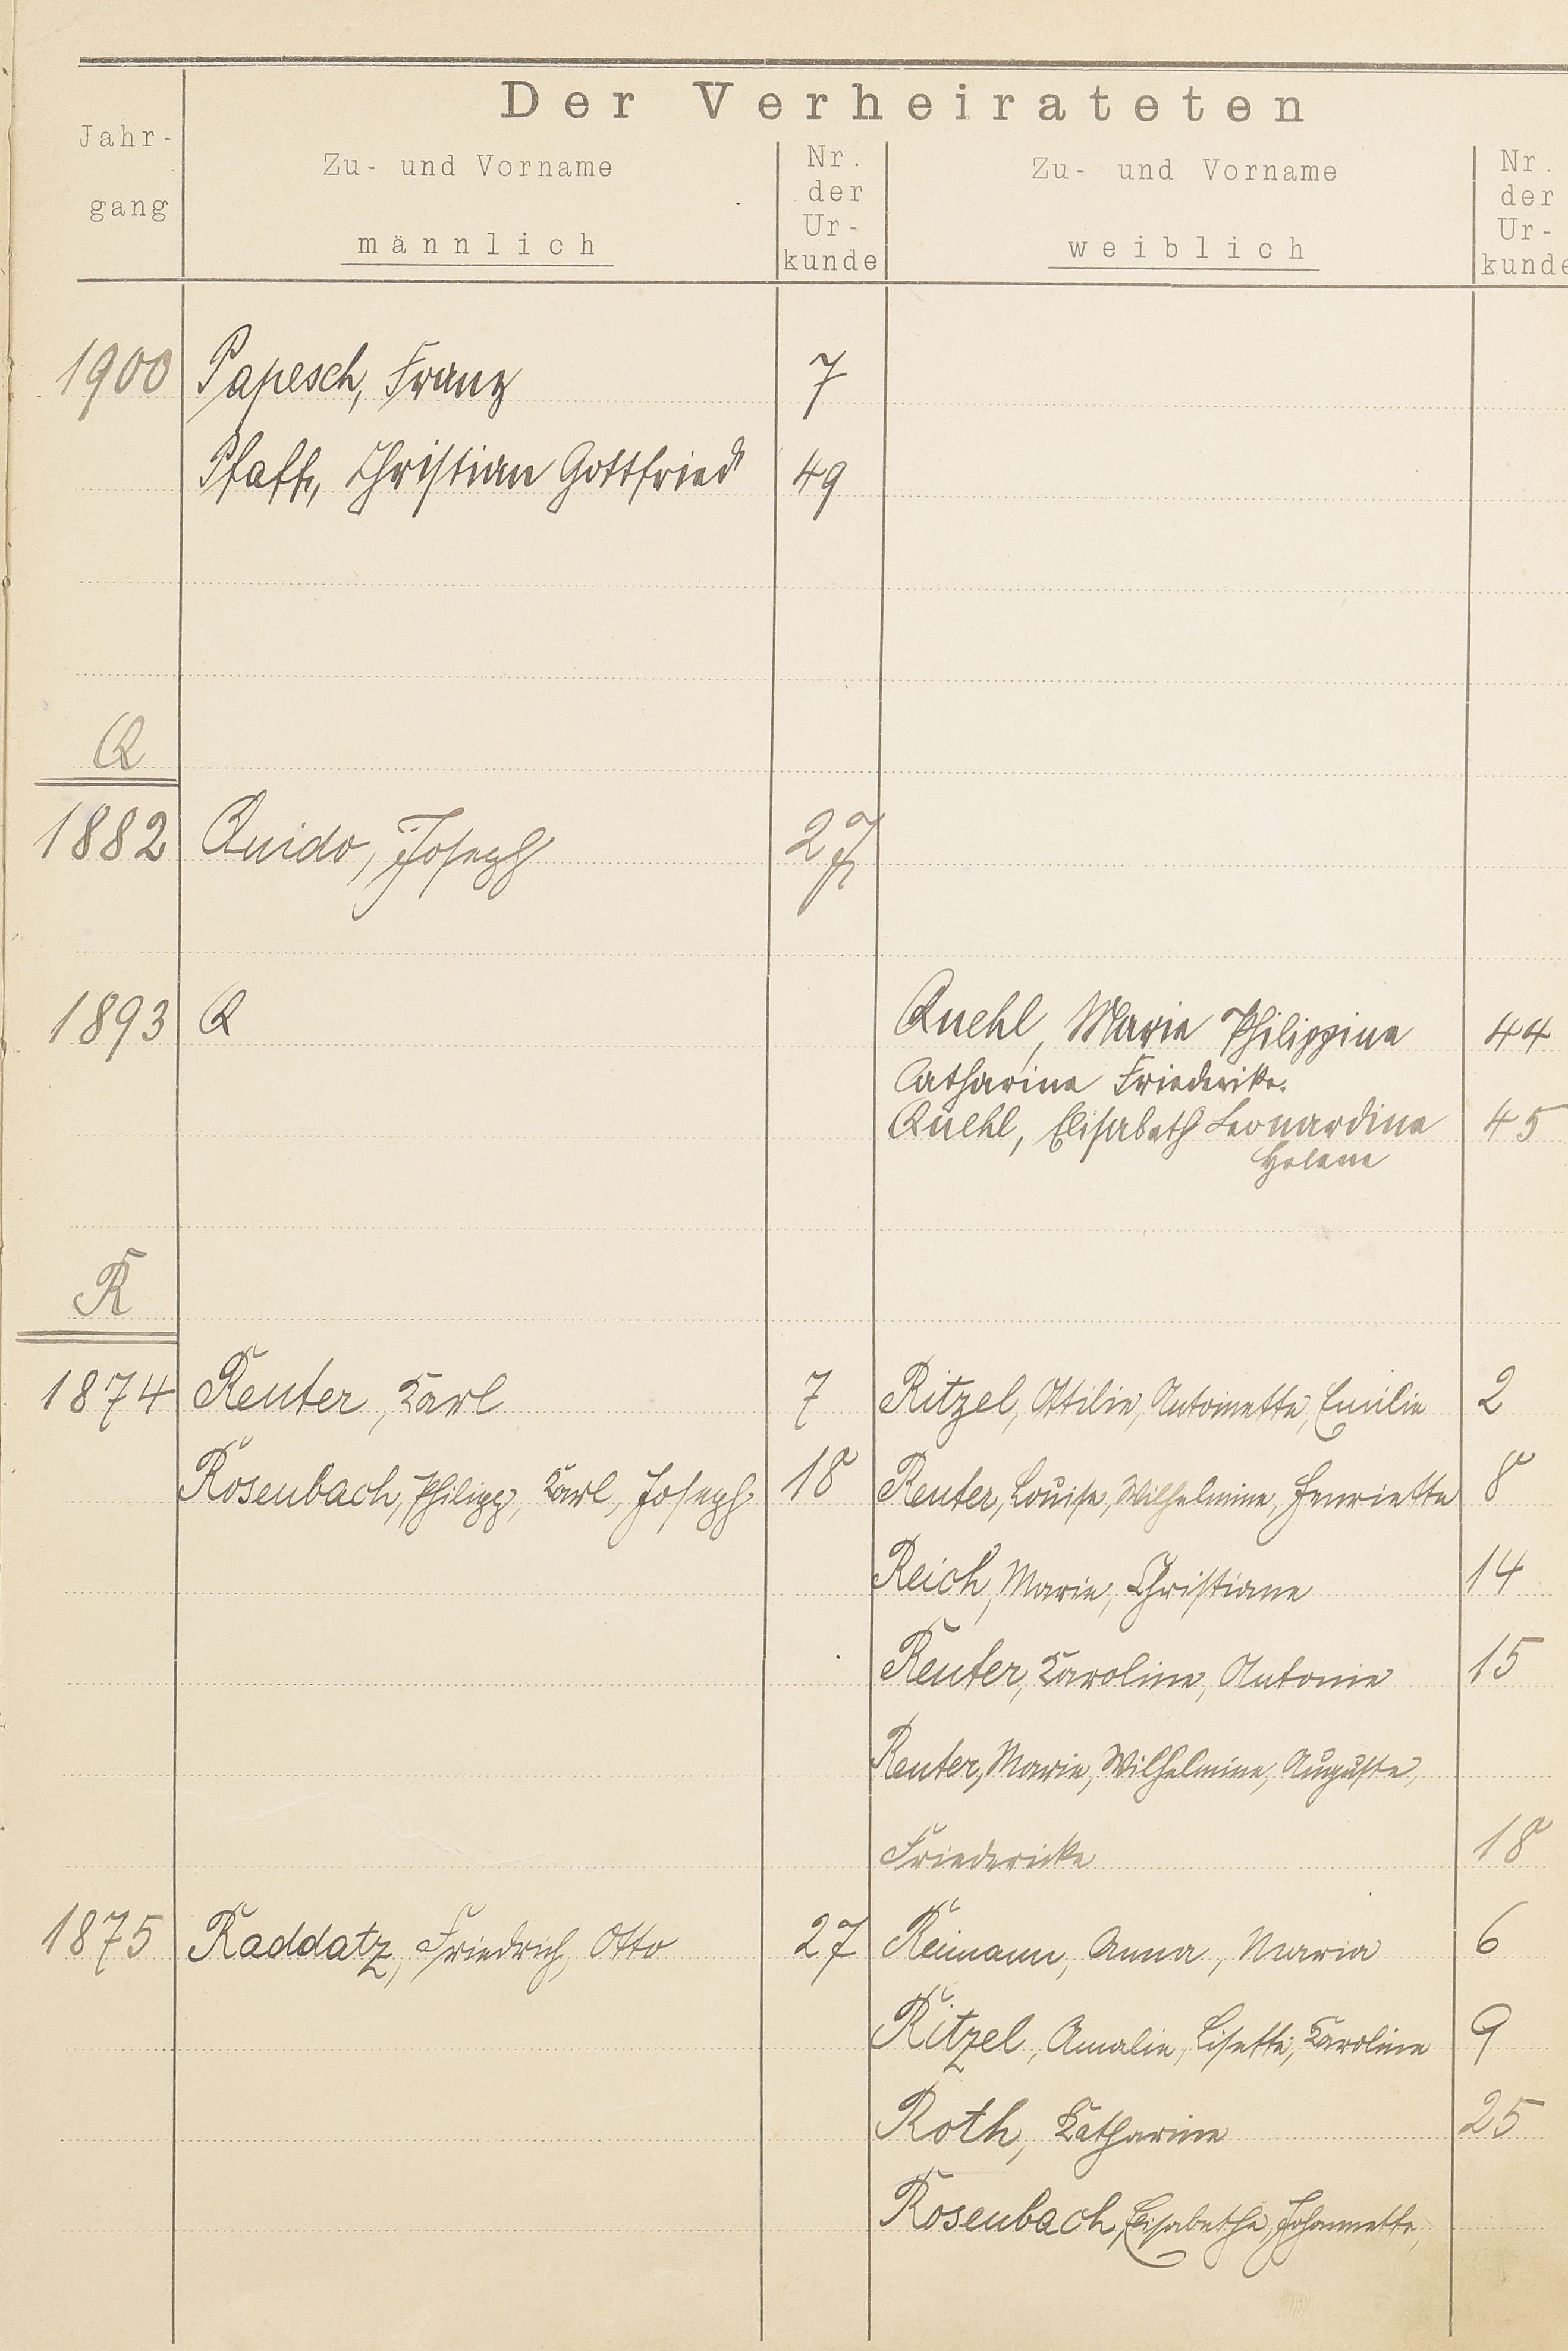 Der Verheirateten
Jahr-
gang
Zu- und Vorname
männlich
Nr.
der
Ur-
kunde
Zu- und Vorname
weiblich
Nr.
der
Ur-
kunde
1900 Papesch, Franz 7
Pfaff, Christian Gottfried 49
Q
1882 Quido, Joseph 27
1893 Q Quehl, Marie Philippine 44
Catharina Friederike.
Quehl, Elisabeth Leonardine 45
Helene
R
1874 Reuter, Karl 7 Ritzel, Ottilie, Antoinette, Emilie 2
Rosenbach, Philipp, Karl, Joseph 18 Reuter, Louise, Wilhelmine, Henriette 8
Reich, Marie, Christiane 14
Reuter, Karoline, Antonie 15
Reuter, Marie, Wilhelmine, Auguste,
Friedericke 18
1875 Raddatz, Friedrich, Otto 27 Reimann, Anna, Maria 6
Ritzel, Amalie, Lisette, Karoline 9
Roth, Katharine 25
Rosenbach, Elisabetha, Johannette,